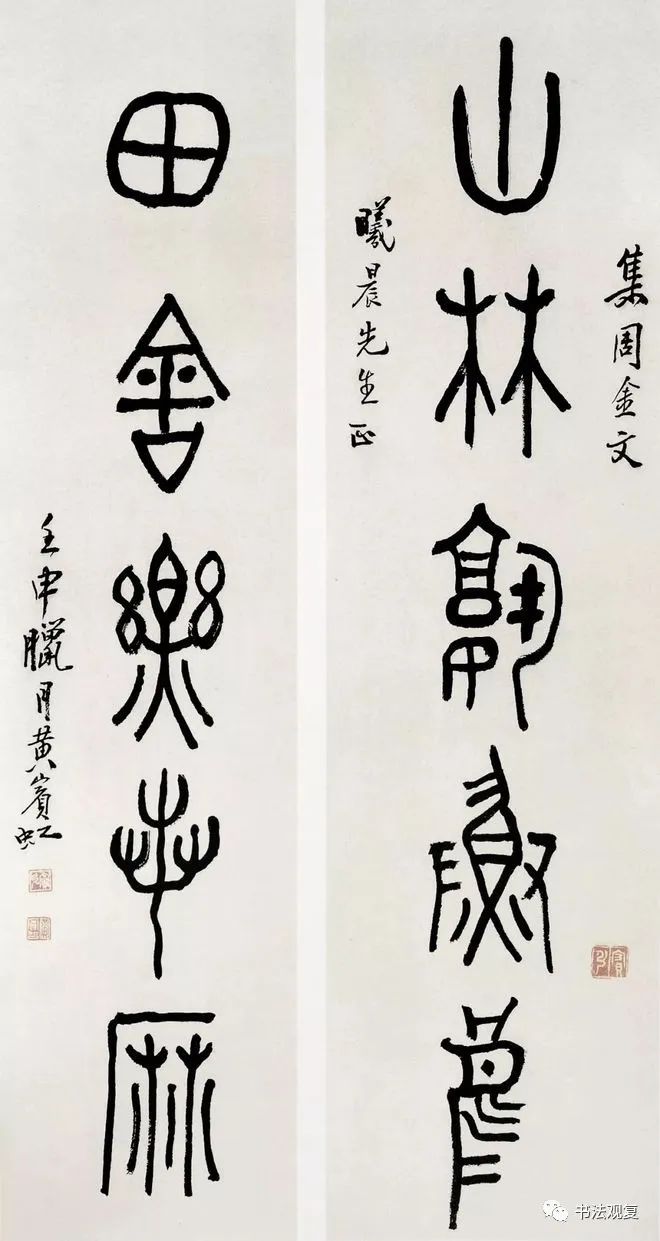 集周金文
山林孰
曦晨先生正
田舍樂桑麻
壬申臘月黃賓虹
书法观复